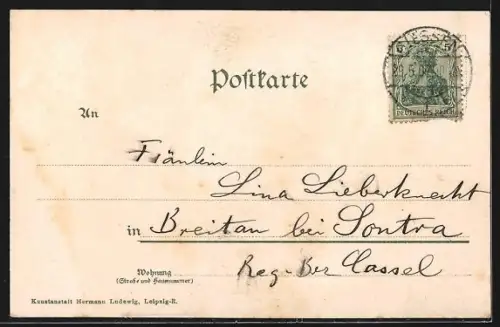 Postkarte
An
Fräulein
Lina Lieberknecht
in Breitau bei Sontra
Reg. Bez Cassel
Wohnung
(Straße und Hausnummer)
Kunstanstalt Hermann Ludewig, Leipzig-R.
GIESSEN
DEUTSCHES REICH